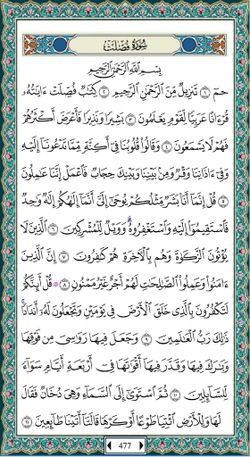 سُورَةُ فُصِّلَتْ
بِسْمِ ٱللَّهِ ٱلرَّحْمَٰنِ ٱلرَّحِيمِ
حمٓ ١ تَنزِيلٌ مِّنَ ٱلرَّحْمَٰنِ ٱلرَّحِيمِ ٢ كِتَٰبٌ فُصِّلَتْ ءَايَٰتُهُۥ
قُرْءَانًا عَرَبِيًّا لِّقَوْمٍ يَعْلَمُونَ ٣ بَشِيرًا وَنَذِيرًا فَأَعْرَضَ أَكْثَرُهُمْ
فَهُمْ لَا يَسْمَعُونَ ٤ وَقَالُوا۟ قُلُوبُنَا فِىٓ أَكِنَّةٍ مِّمَّا تَدْعُونَآ إِلَيْهِ
وَفِىٓ ءَاذَانِنَا وَقْرٌ وَمِنۢ بَيْنِنَا وَبَيْنِكَ حِجَابٌ فَٱعْمَلْ إِنَّنَا عَٰمِلُونَ
٥ قُلْ إِنَّمَآ أَنَا۠ بَشَرٌ مِّثْلُكُمْ يُوحَىٰٓ إِلَىَّ أَنَّمَآ إِلَٰهُكُمْ إِلَٰهٌ وَٰحِدٌ
فَٱسْتَقِيمُوٓا۟ إِلَيْهِ وَٱسْتَغْفِرُوهُ وَوَيْلٌ لِّلْمُشْرِكِينَ ٦ ٱلَّذِينَ لَا
يُؤْتُونَ ٱلزَّكَوٰةَ وَهُم بِٱلْءَاخِرَةِ هُمْ كَٰفِرُونَ ٧ إِنَّ ٱلَّذِينَ
ءَامَنُوا۟ وَعَمِلُوا۟ ٱلصَّٰلِحَٰتِ لَهُمْ أَجْرٌ غَيْرُ مَمْنُونٍ ٨ قُلْ أَئِنَّكُمْ
لَتَكْفُرُونَ بِٱلَّذِى خَلَقَ ٱلْأَرْضَ فِى يَوْمَيْنِ وَتَجْعَلُونَ لَهُۥٓ أَندَادًا
ذَٰلِكَ رَبُّ ٱلْعَٰلَمِينَ ٩ وَجَعَلَ فِيهَا رَوَٰسِىَ مِن فَوْقِهَا
وَبَٰرَكَ فِيهَا وَقَدَّرَ فِيهَآ أَقْوَٰتَهَا فِىٓ أَرْبَعَةِ أَيَّامٍ سَوَآءً
لِّلسَّآئِلِينَ ١٠ ثُمَّ ٱسْتَوَىٰٓ إِلَى ٱلسَّمَآءِ وَهِىَ دُخَانٌ فَقَالَ
لَهَا وَلِلْأَرْضِ ٱئْتِيَا طَوْعًا أَوْ كَرْهًا قَالَتَآ أَتَيْنَا طَآئِعِينَ ١١
477